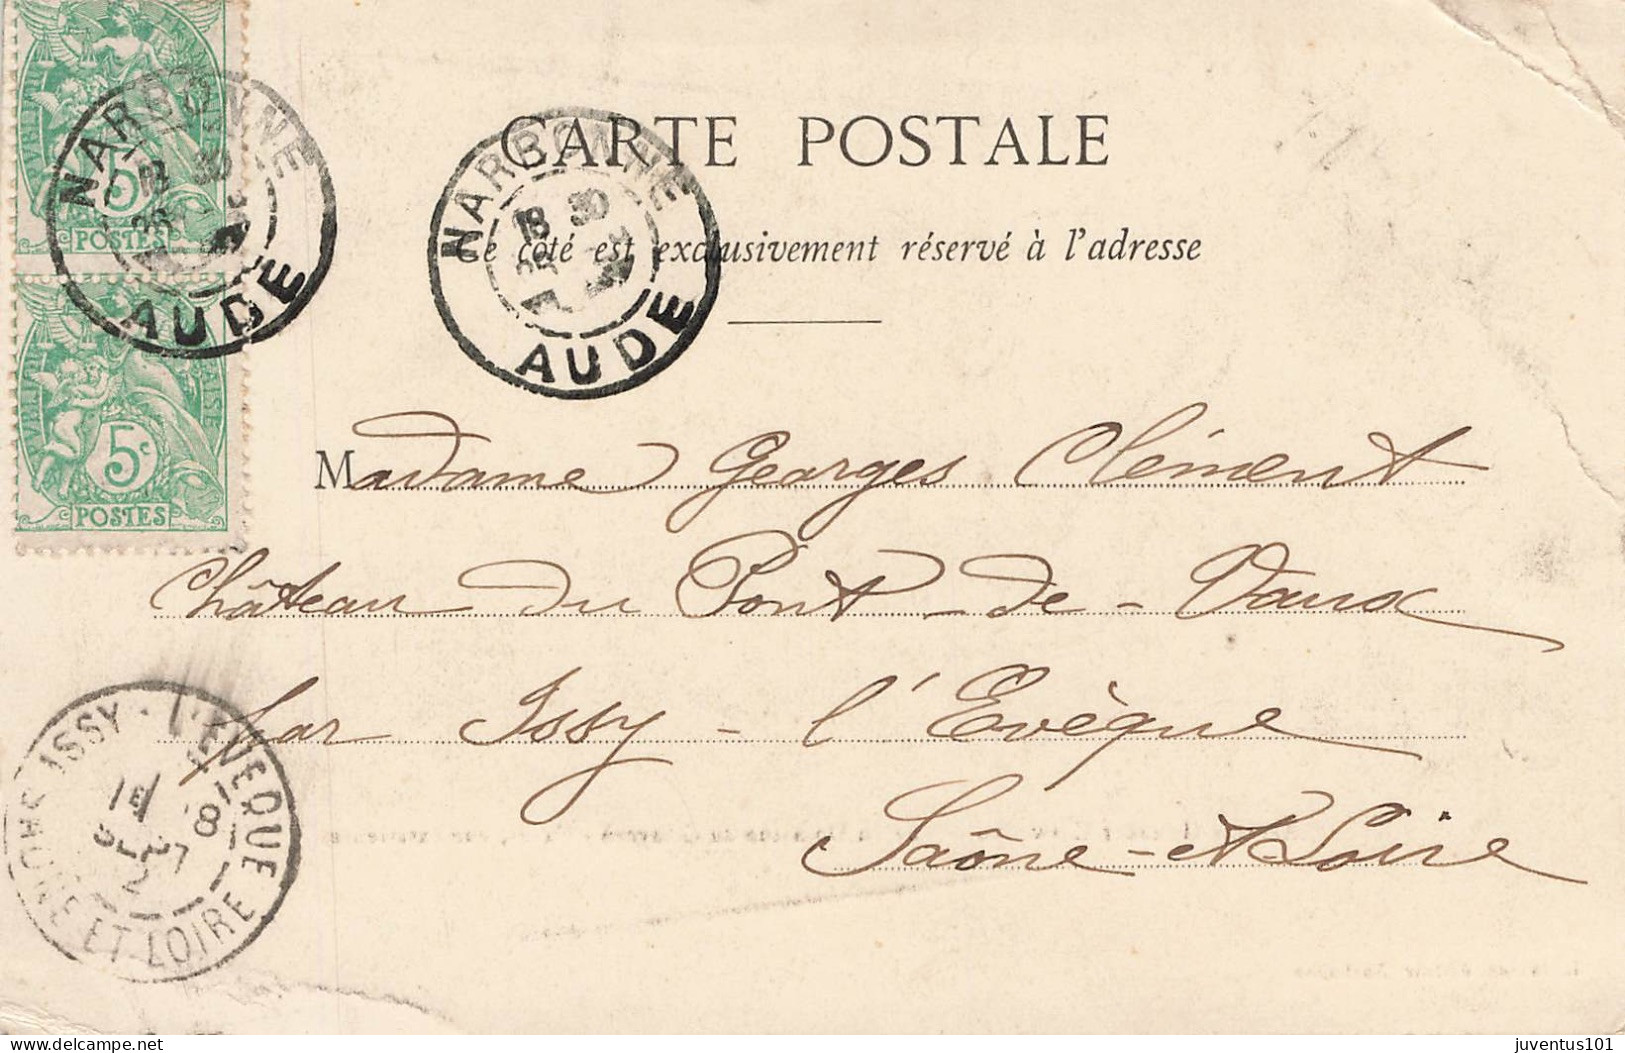 CARTE POSTALE
Ce côté est exclusivement réservé à l'adresse
NARBONNE
18 30
AUDE
NARBONNE
18 30
AUDE
5
POSTES
5c
POSTES
Madame Georges Clément
Château du Pont-de-Vaux
par Issy-l'Evèque
Saône-et Loire
ISSY-L'EVEQUE
SAONE-ET-LOIRE
Delcampe.net
juventus101